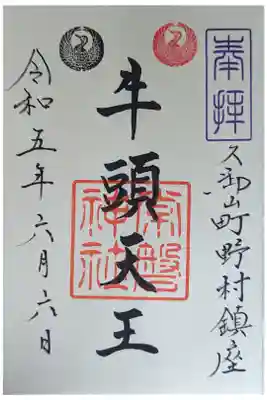 奉拝
久御山町野村鎮座
牛頭天王
常磐神社
令和五年六月六日